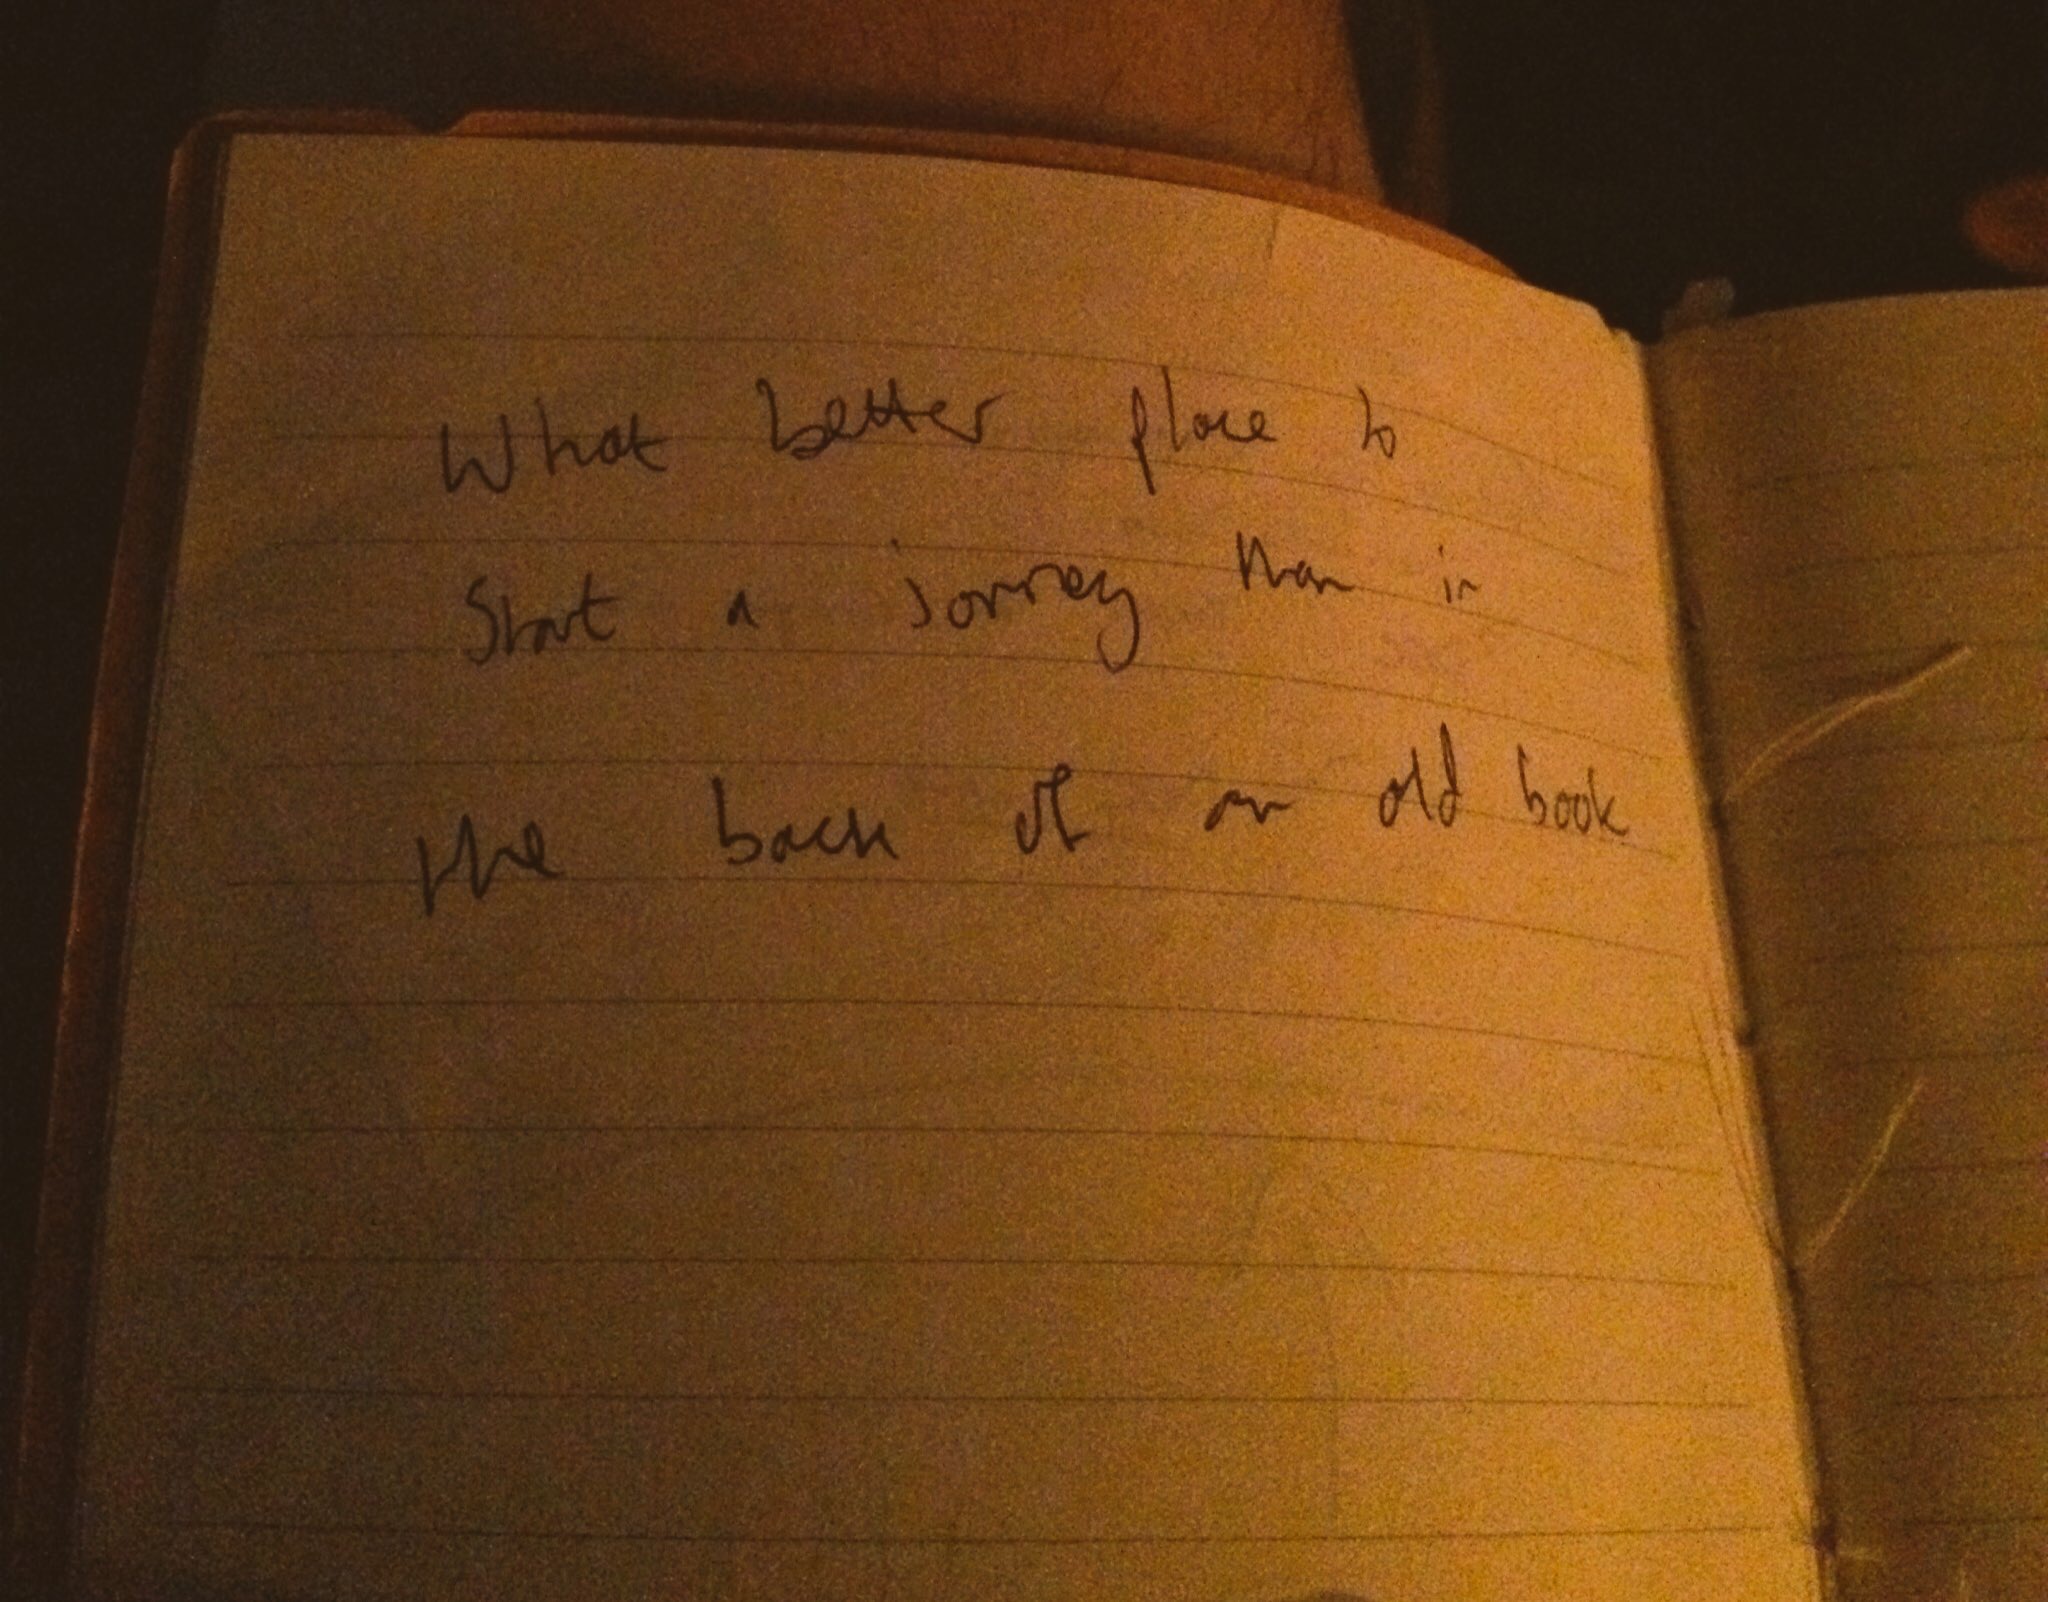 What better place to
Start a jorney than in
the back of an old book